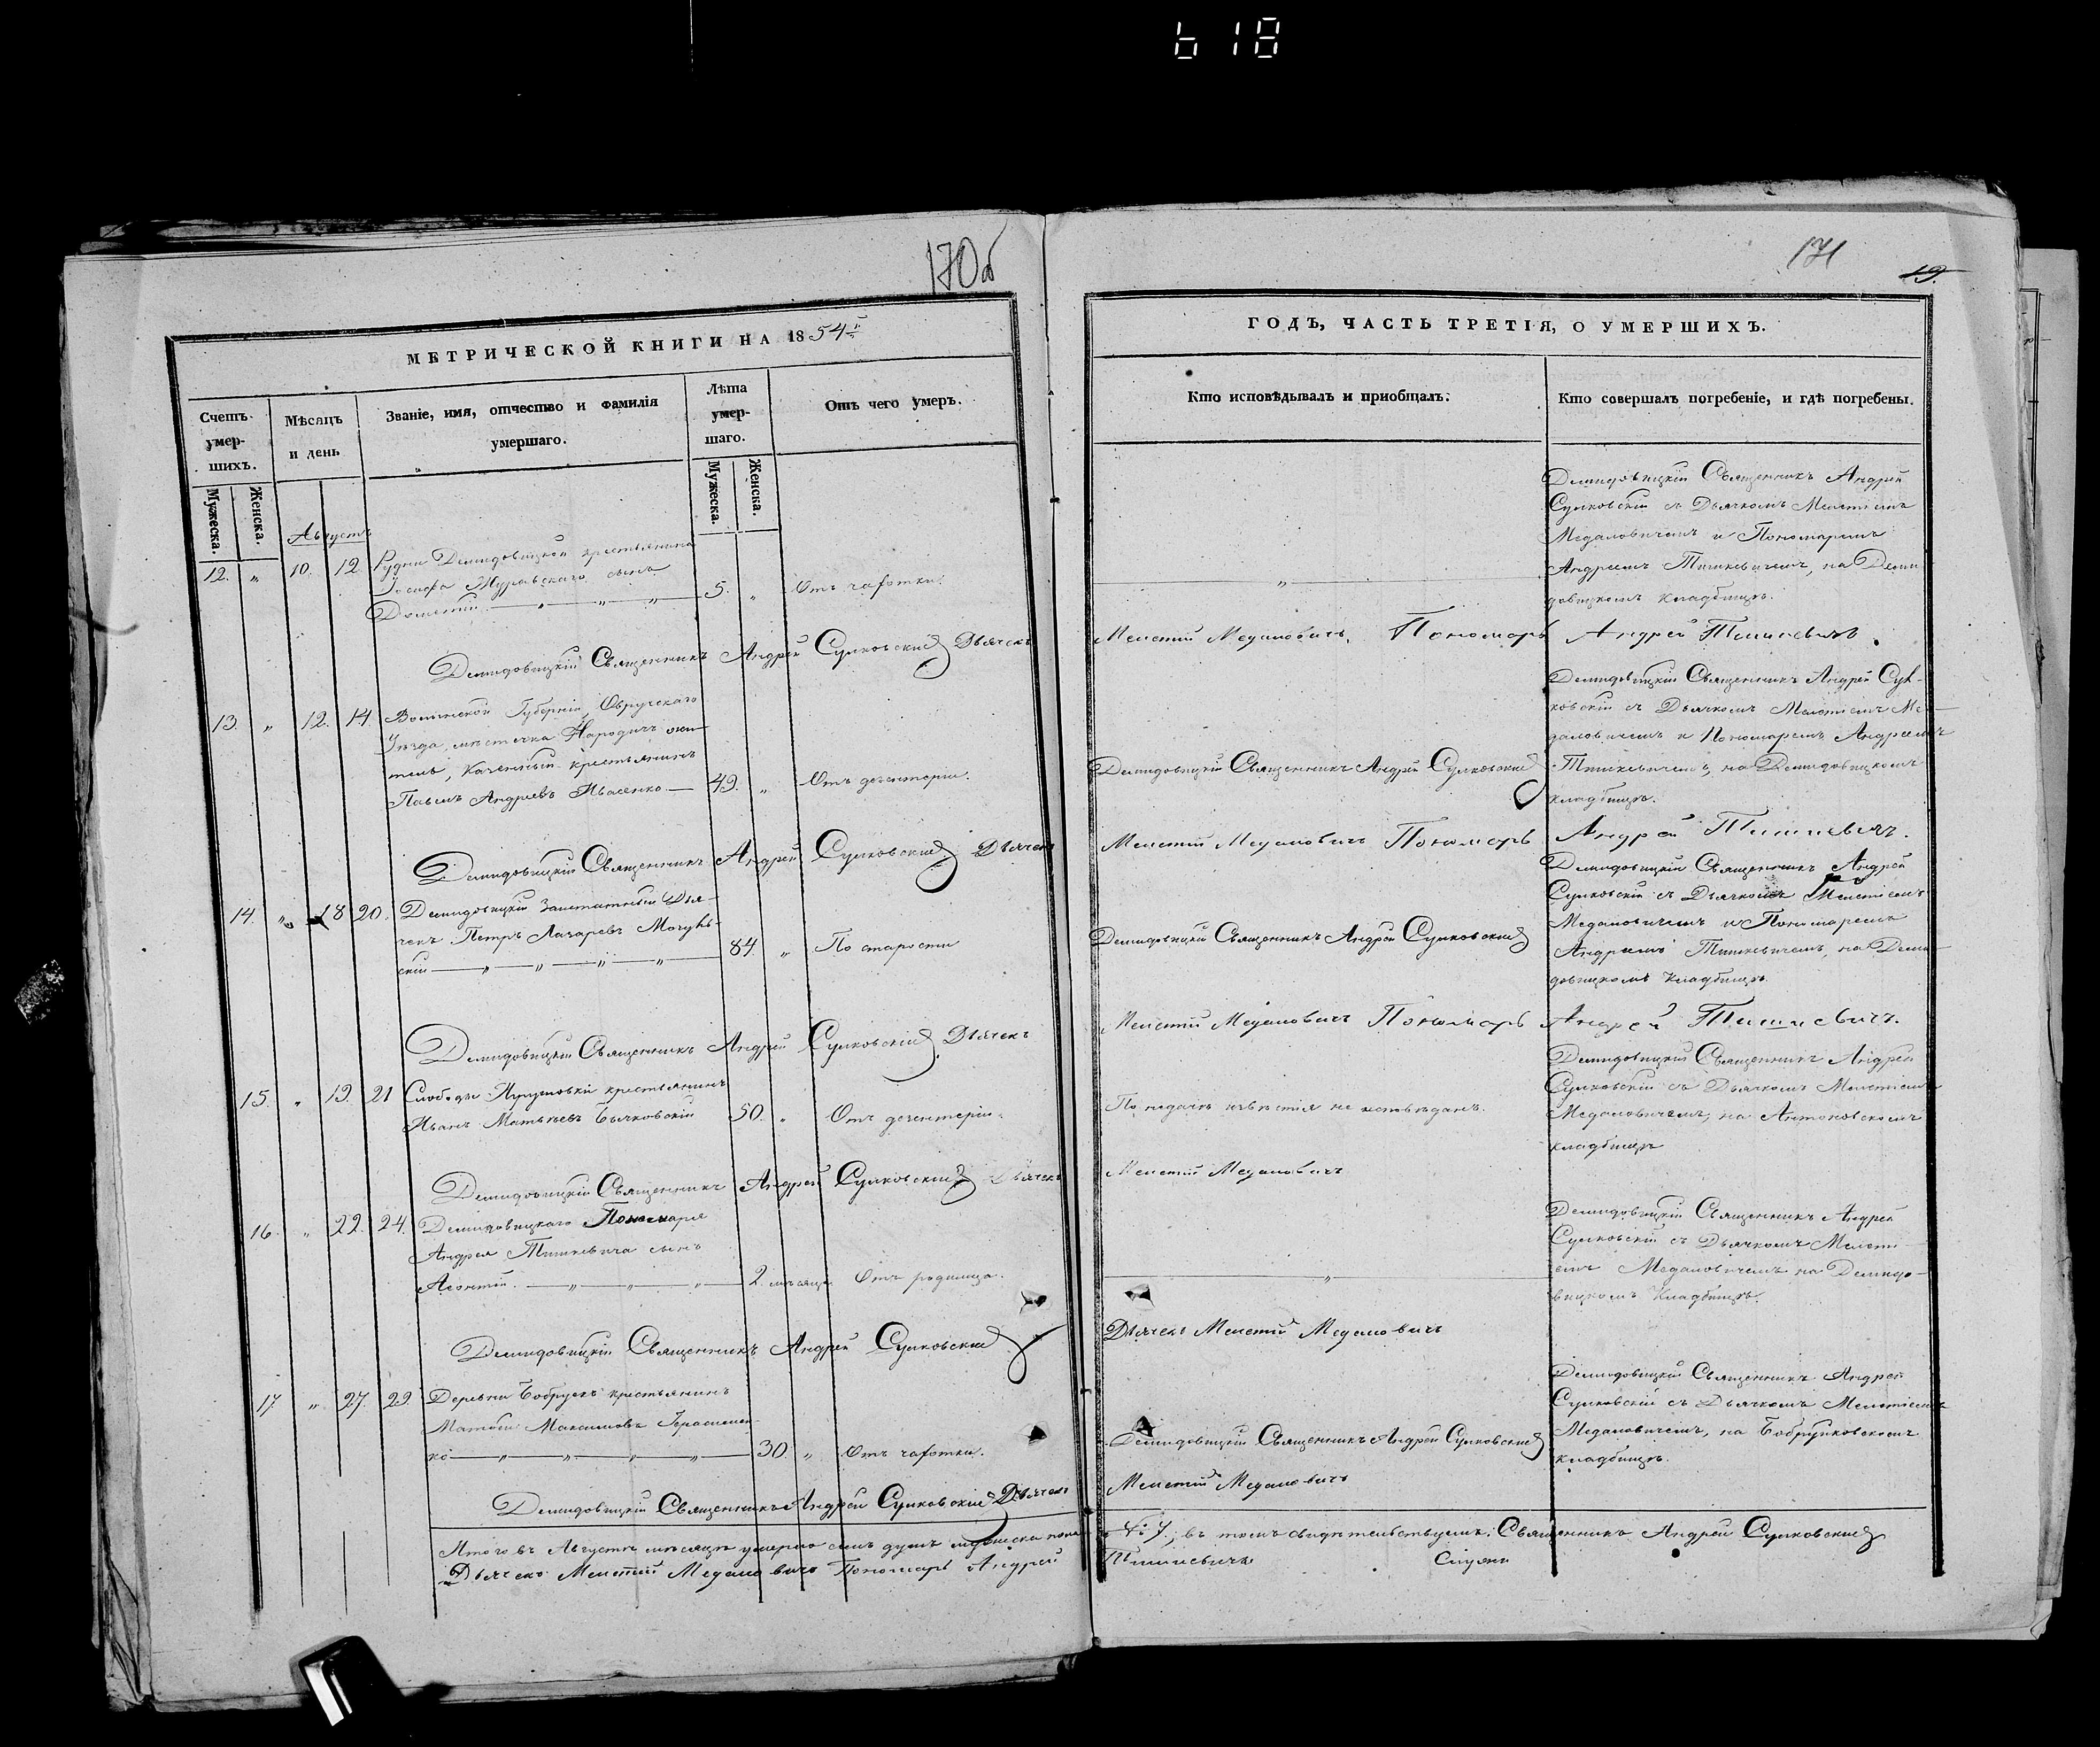 618
170б
МЕТРИЧЕСКОЙ КНИГИ НА 1854й
Счетъ умер-шихъ.
Мѣсяцъ и день
Званіе, имя, отчество и фамилія умершаго.
Лѣта умер-шаго.
Отъ чего умеръ.
Мужеска.
Женска.
Мужеска.
Женска.
Августъ
12. „ 10. 12 Рудни Демидовицкой крестьянина
Іосифа Журавскаго сынъ
Дометій — „ — „ — „ — 5. „ Отъ чахотки.
Демидовицкій Священникъ Андрей Сулковскій Дьячекъ
13. „ 12. 14 Волынской Губерніи, Овручскаго
Уѣзда, мѣстечка Народичъ жи-
тель, Казенный крестьянинъ
Павелъ Андреевъ Ивасенко — 49. „ Отъ дезентеріи.
Демидовицкій Священникъ Андрей Сулковскій Дьячекъ
14. „ 18 20. Демидовицкій Заштатный Дья-
чекъ Петръ Лазаревъ
скій — „ — „ — „ — „ — 84. „ По старости
Демидовицкій Священникъ Андрей Сулковскій. Дьячекъ
15. „ 19. 21 Слободы крестьянинъ
Иванъ Матвѣевъ Бычковскій 50. „ Отъ дезентеріи.
Демидовицкій Священникъ Андрей Сулковскій Дьячекъ
16. „ 22. 24. Демидовицкаго Пономаря
Андрея Тишкевича сынъ
Леонтій. — „ — „ — „ — 2. мѣсяца. Отъ родимца.
Демидовицкій Священникъ Андрей Сулковскій
17. „ 27. 29. Деревни Бобрукъ крестьянинъ
Матвѣй Максимовъ Герасимен-
ко — „ — „ — „ — „ — 30. „ Отъ чахотки.
Демидовицкій Священникъ Андрей Сулковскій Дьячекъ
Итого въ Августѣ мѣсяцѣ умерло семь душъ мужеска пола
Дьячекъ Мелетій Медановичъ Пономарь Андрей
171
19.
ГОДЪ, ЧАСТЬ ТРЕТІЯ, О УМЕРШИХЪ.
Кто исповѣдывалъ и приобщалъ.
Кто совершалъ погребеніе, и гдѣ погребены.
„
Демидовицкій Священникъ Андрей
Сулковскій съ Дьячкомъ Мелетіемъ
Медановичемъ и Пономаремъ
Андреемъ Тишкевичемъ, на Деми
довицкомъ кладбищѣ.
Мелетій Медановичъ. Пономарь Андрей Тишкевичъ.
Демидовицкій Священникъ Андрей Сулковскій
Демидовицкій Священникъ Андрей Сул-
ковскій съ Дьячкомъ Мелетіемъ Ме-
дановичемъ и Пономаремъ Андреемъ
Тишкевичемъ, на Демидовицкомъ
кладбищѣ.
Мелетій Медановичъ Пономарь Андрей Тишкевичъ.
Демидовицкій Священникъ Андрей Сулковскій
Демидовицкій Священникъ Андрей
Сулковскій съ Дьячкомъ Мелетіемъ
Медановичемъ и Пономаремъ
Андреемъ Тишкевичемъ, на Деми
довицкомъ кладбищѣ.
Мелетій Медановичъ Пономарь Андрей Тишкевичъ.
По недачѣ извѣстія не исповѣданъ.
Демидовицкій Священникъ Андрей
Сулковскій съ Дьячкомъ Мелетіемъ
Медановичемъ, на Антоновскомъ
кладбищѣ
Мелетій Медановичъ
„
Демидовицкій Священникъ Андрей
Сулковскій съ Дьячкомъ Мелеті-
емъ Медановичемъ на Демидо-
вицкомъ Кладбищѣ.
Дьячекъ Мелетій Медановичъ
Демидовицкій Священникъ Андрей Сулковскій
Демидовицкій Священникъ Андрей
Сулковскій съ Дьячкомъ Мелетіемъ
Медановичемъ, на
кладбищѣ.
Мелетій Медановичъ
№ 7, въ томъ свидѣтельствуемъ: Священникъ Андрей Сулковскій
Тишкевичъ